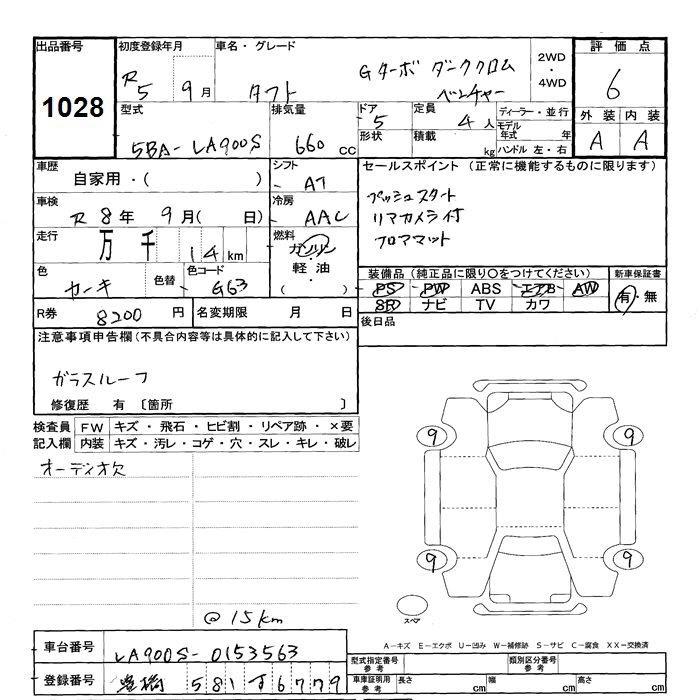 出品番号 初度登録年月 車名・グレード 2WD・4WD 評価点
1028 R5 9月 タフト Gターボ ダーククロムベンチャー 6
型式 排気量 ドア 5 定員 4人 ディーラー・並行 外装 内装
5BA-LA900S 660cc 形状 積載 kg モデル年式 年 A A
ハンドル 左・右
車歴 自家用・( ) シフト AT セールスポイント (正常に機能するものに限ります)
車検 R8年 9月( 日) 冷房 AAC プッシュスタート
リアカメラ付
走行 万 千 14km 燃料 ガソリン・軽油( ) フロアマット
色 カーキ 色替 色コード G63 装備品 (純正品に限り○をつけてください) 新車保証書
PS PW ABS エアB AW 有・無
SR ナビ TV カワ
R券 8200円 名変期限 月 日 後日品
注意事項申告欄(不具合内容等は具体的に記入して下さい)
ガラスルーフ
修復歴 有 〔箇所 〕
検査員 FW キズ・飛石・ヒビ割・リペア跡・×要
記入欄 内装 キズ・汚レ・コゲ・穴・スレ・キレ・破レ
オーディオ欠
9 9
9 9
スペア
@15km
A-キズ E-エクボ U-凹み W-補修跡 S-サビ C-腐食 XX-交換済
車台番号 LA900S-0153563 型式指定番号 参考 類別区分番号 参考
登録番号 豊橋 581 す 6779 車庫証明用 参考 長さ cm 幅 cm 高さ cm